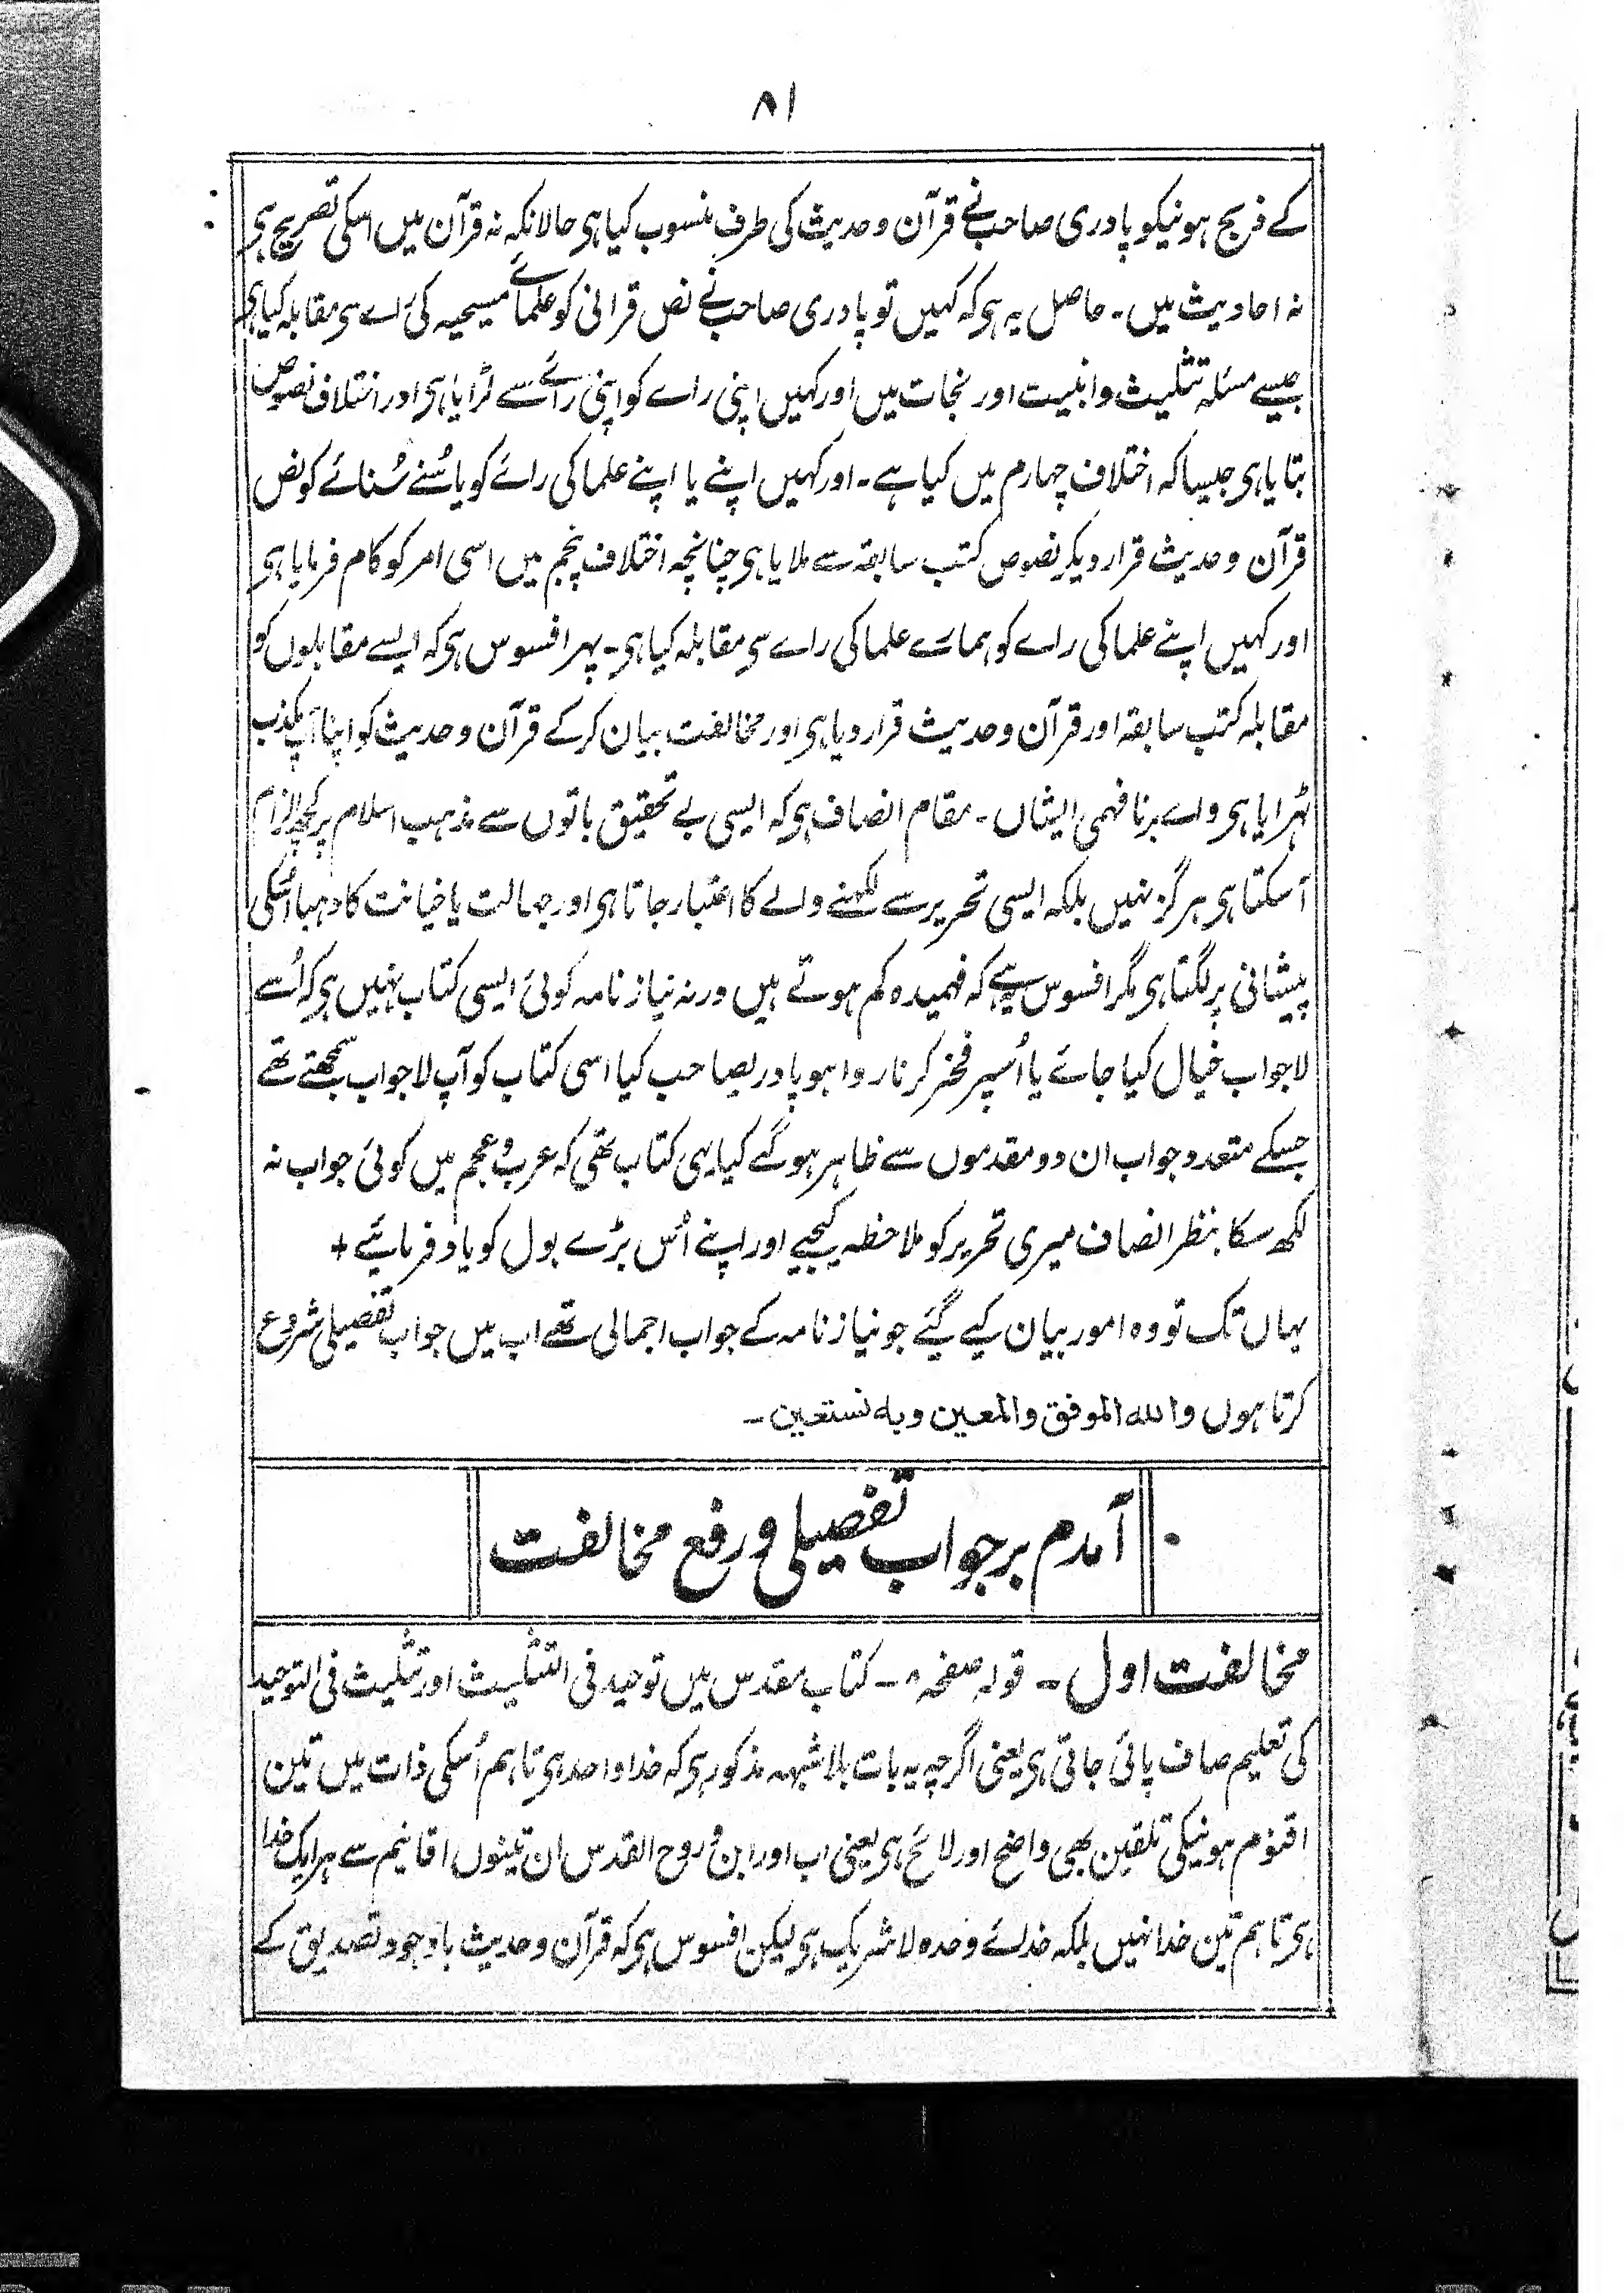 ۸۱
کے ذبیح ہونیکو پادری صاحب نے قرآن و حدیث کی طرف منسوب کیا ہی حالانکہ نہ قرآن میں اسکی تصریح ہی
نہ احادیث میں ۔ حاصل یہ ہی کہ کہیں تو پادری صاحب نے نص قرانی کو علمائے مسیحیہ کی راے سی مقابلہ کیا ہی
جیسے مسئلہ تثلیث و ابنیت اور نجات میں اور کہیں اپنی راے کو اپنی راے سے لڑایا ہی اور اختلاف نصوص
بتایا ہی جیسا کہ اختلاف چہارم میں کیا ہے ۔ اور کہیں اپنے یا اپنے علما کی رائے کو یا سُنے سُنائے کو نص
قرآن و حدیث قرار دیکر نصوص کتب سابقہ سے ملایا ہی چنانچہ اختلاف پنجم میں اسی امر کو کام فرمایا ہی
اور کہیں اپنے علما کی راے کو ہمارے علما کی راے سی مقابلہ کیا ہی ۔ پہر افسوس ہی کہ ایسے مقابلوں کو
مقابلہ کتب سابقہ اور قرآن و حدیث قرار دیا ہی اور مخالفت بیان کر کے قرآن و حدیث کو اپنا آپ مکذب
ٹہرایا ہی واے بر نافہمی ایشاں ۔ مقام انصاف ہی کہ ایسی بے تحقیق باتوں سے مذہب اسلام پر کچھ الزام
آسکتا ہی ہرگز نہیں بلکہ ایسی تحریر سے لکھنے والے کا اعتبار جاتا ہی اور جہالت یا خیانت کا دہبا اُسکی
پیشانی پر لگتا ہی مگر افسوس یہی ہے کہ فہمیدہ کم ہوتے ہیں ورنہ نیاز نامہ کوئی ایسی کتاب نہیں ہی کہ اُسے
لاجواب خیال کیا جائے یا اُسپر فخر کرنا روا ہو پادریصاحب کیا اسی کتاب کو آپ لاجواب سمجھتے تھے
جسکے متعدد جواب ان دو مقدموں سے ظاہر ہوگئے کیا یہی کتاب تھی کہ عرب و عجم میں کوئی جواب نہ
لکھ سکا بنظر انصاف میری تحریر کو ملاحظہ کیجیے اور اپنے اُس بڑے بول کو یاد فرمائیے +
یہاں تک تو وہ امور بیان کیے گیئے جو نیاز نامہ کے جواب اجمالی تھے اب میں جواب تفصیلی شروع
کرتا ہوں والله الموفق والمعین وبه نستعین ۔
آمدم بر جواب تفصیلی و رفع مخالفت
مخالفت اول ۔ قولہ صفحہ ۸ ۔ کتاب مقدس میں توحید فی التثلیث اور تثلیث فی التوحید
کی تعلیم صاف پائی جاتی ہی یعنی اگرچہ یہ بات بلا شبہہ مذکور ہی کہ خدا واحد ہی تاہم اُسکی ذات میں تین
اقنوم ہونیکی تلقین بھی واضح اور لائح ہی یعنی اب اور ابن و روح القدس ان تینوں اقانیم سے ہر ایک خدا
ہی تاہم تین خدا نہیں بلکہ خدائے وحدہ لاشریک ہی لیکن افسوس ہی کہ قرآن و حدیث باوجود تصدیق کے